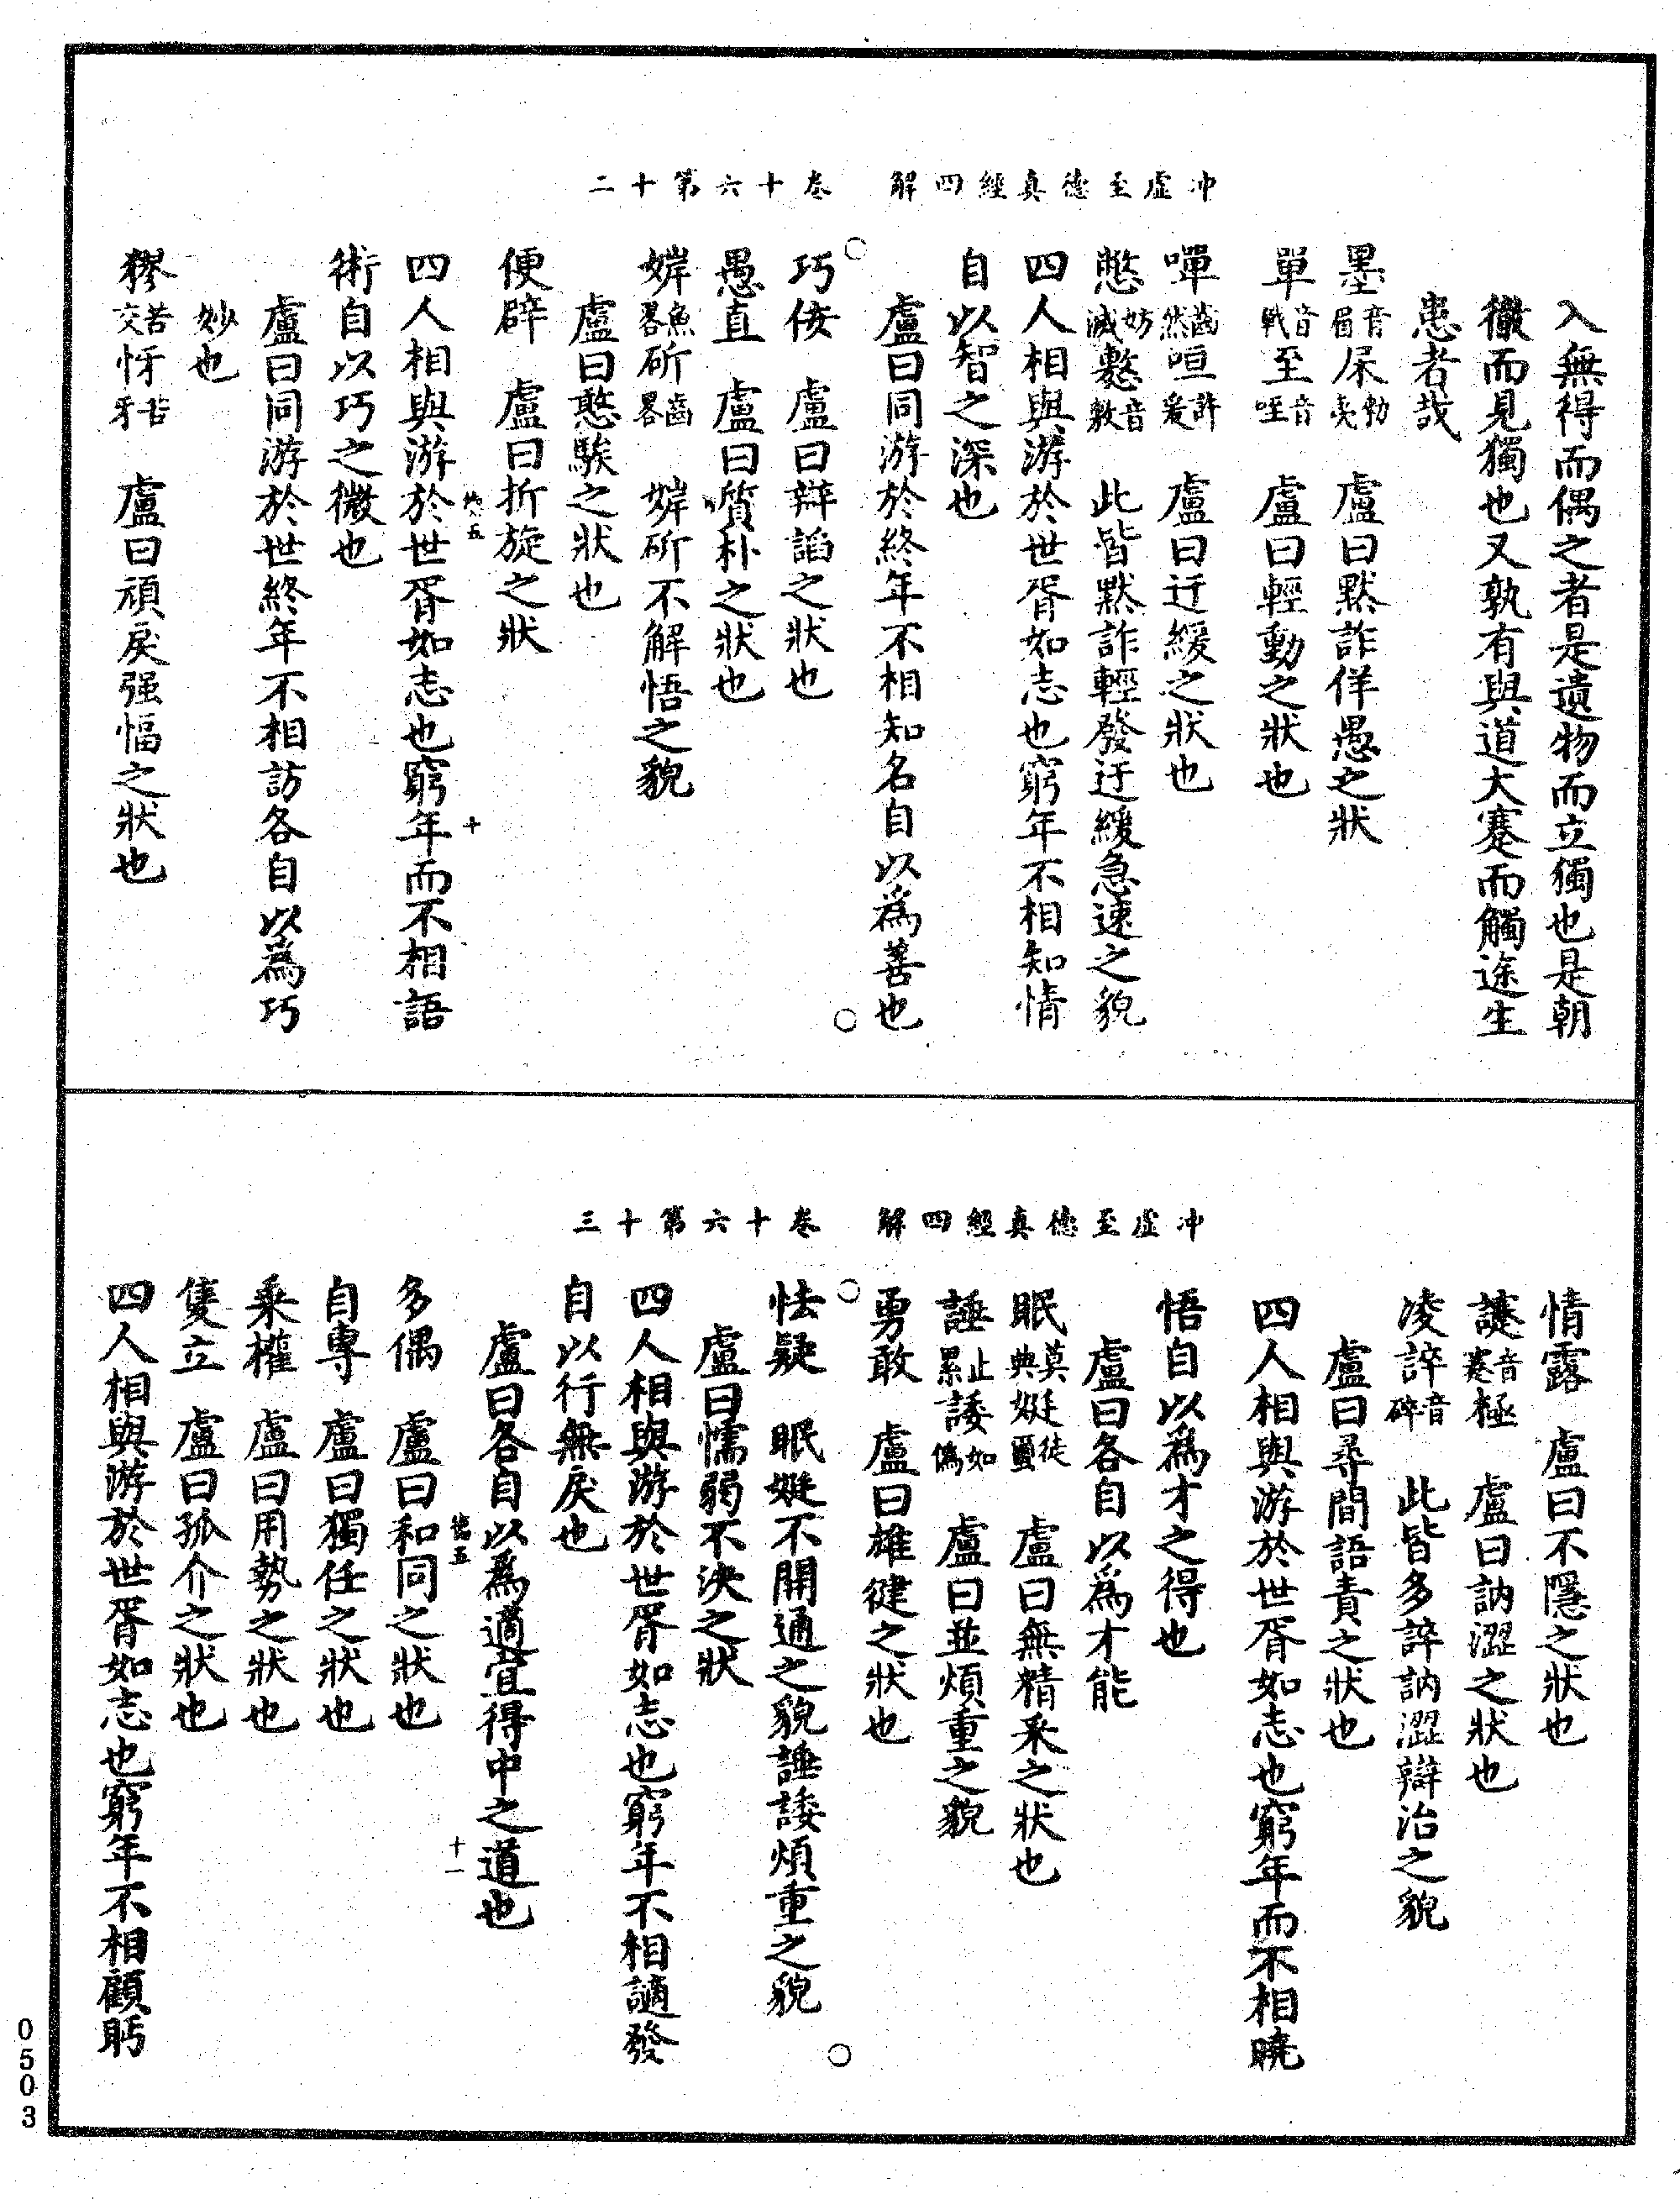 冲虛至德真經四解　卷十六第十二
入無得而偶之者是遺物而立獨也是朝
徹而見獨也又孰有與道大蹇而觸途生
患者哉
墨音眉㞏勑夷　盧曰黙詐佯愚之狀
單音戰至音咥　盧曰輕動之狀也
嘽齒然咺許爰　盧曰迂緩之狀也
憋妨滅憨音敷　此皆黙詐輕發迂緩急速之貌
四人相與游於世胥如志也窮年不相知情
自以智之深也
盧曰同游於終年不相知名自以為善也
巧佞　盧曰辯謟之狀也
愚直　盧曰質朴之狀也
婩魚畧斫齒畧　婩斫不解悟之貌
盧曰憨騃之狀也
便辟　盧曰折旋之狀
四人相與游於世胥如志也窮年而不相語
術自以巧之微也
盧曰同游於世終年不相訪各自以為巧
妙也
㺒苦交㤉苦牙　盧曰頑戾强愊之狀也
德五　十
冲虛至德真經四解　卷十六第十三
情露　盧曰不隱之狀也
𧫦音蹇極　盧曰訥澀之狀也
凌誶音碎　此皆多誶訥澀辯治之貌
盧曰尋間語責之狀也
四人相與游於世胥如志也窮年而不相曉
悟自以為才之得也
盧曰各自以為才能
眠莫典娗徒璽　盧曰無精采之狀也
諈止累諉如僞　盧曰並煩重之貌
勇敢　盧曰雄健之狀也
怯疑　眠娗不開通之貌諈諉煩重之貌
盧曰懦弱不決之狀
四人相與游於世胥如志也窮年不相讁發
自以行無戾也
盧曰各自以為適宜得中之道也
多偶　盧曰和同之狀也
自專　盧曰獨任之狀也
乘權　盧曰用勢之狀也
隻立　盧曰孤介之狀也
四人相與游於世胥如志也窮年不相顧眄
德五　十一
0503